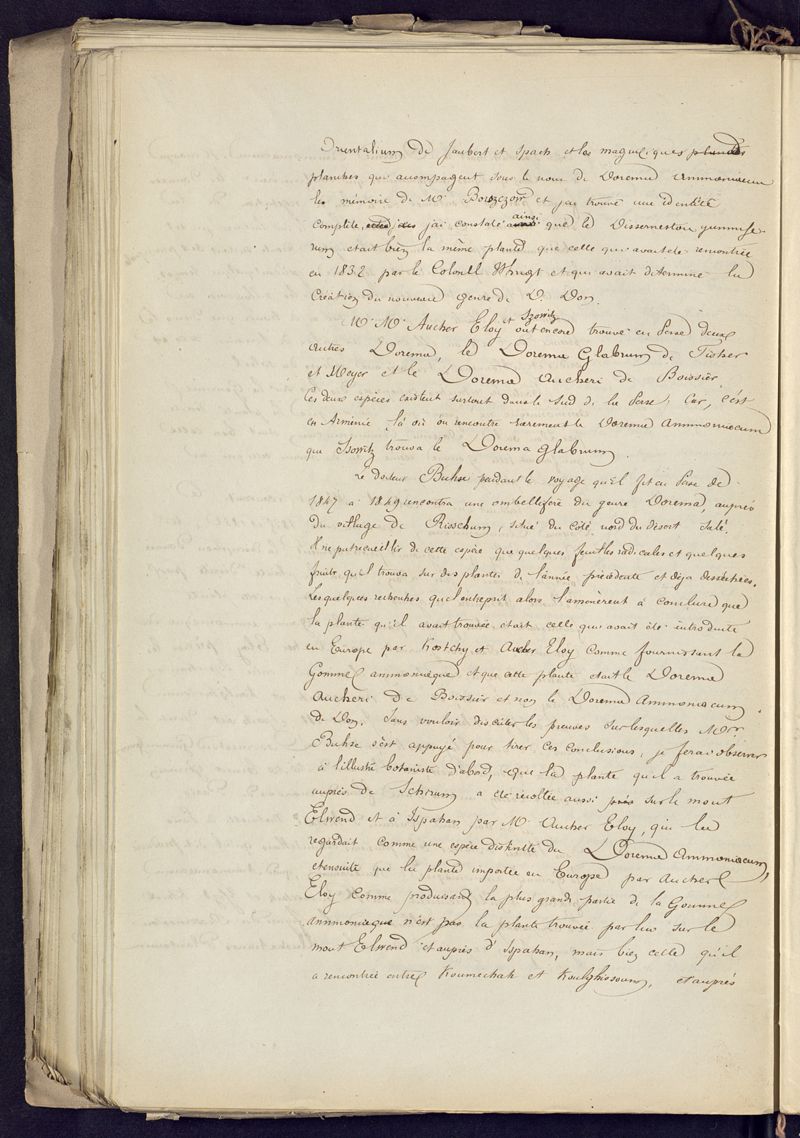 Orientalium de Jaubert et Spach et les magnifiques
planches qui accompagnent sous le nom de Dorema Ammoniacum
les mémoire de Mr Borszczow et j'ai trouvé une identité
complète, j'ai constaté ainsi que le Disserneston gummife-
rum etait bien la même plante que celle qui avait été rencontrée
en 1832 par le Colonell Whrigt et qui avait determine la
Création du nouveau genre de D. Don.
Mr. Mr. Aucher Eloy et Szowitz ont encore trouvé en Perse deux
autres Dorema, le Dorema Glabrum de Fischer
et Meyer et le Dorema Aucheri de Boissier.
Ces deux espèces existent surtout dans le Sud de la Perse, Car, c'est
en Arménie là où on rencontre rarement le Dorema Ammoniacum
que Szowitz trouva le Dorema Glabrum.
Le docteur Buhse pendant le voyage qu'il fit en Perse de
1847 à 1849 rencontra une ombellifère du genre Dorema, auprès
du village de Risschum, situé du Coté nord du désert Salé.
Il ne put recueillir de cette espèce que quelques feuilles radicales et quelques
fruits qu'il trouva sur des plantes de l'année précédente et déja desséchées.
Les quelques recherches qu'il entreprit alors l'amenèrent à conclure que
la plante qu'il avait trouvée etait celle qui avait été introduite
en Europe par Kostchy et Aucher Eloy comme fournissant la
Gomme ammoniaque et que cette plante etait le Dorema
Aucheri de Boissier et non le Dorema Ammoniacum
de Don. Sans vouloir discuter les preuves sur lesquelles Mr
Buhse s'est appuyé pour tirer ces conclusions, je ferai observer
à l'illustre botaniste d'abord, que la plante qu'il a trouvée
auprès de Schrum a été récoltée aussi sur le mont
Elwend et à Ispahan par Mr. Aucher Eloy, qui la
regardait comme une espèce distincte du Dorema Ammoniacum,
et ensuite que la plante importée en Europe par Aucher
Eloy comme produisant la plus grande partie de la Gomme
ammoniaque n'est pas la plante trouvée par lui sur le
mont Elwend et auprès d'Ispahan, mais bien celle qu'il
a rencontrée entre Koumechah et Koulghissoum, et auprès